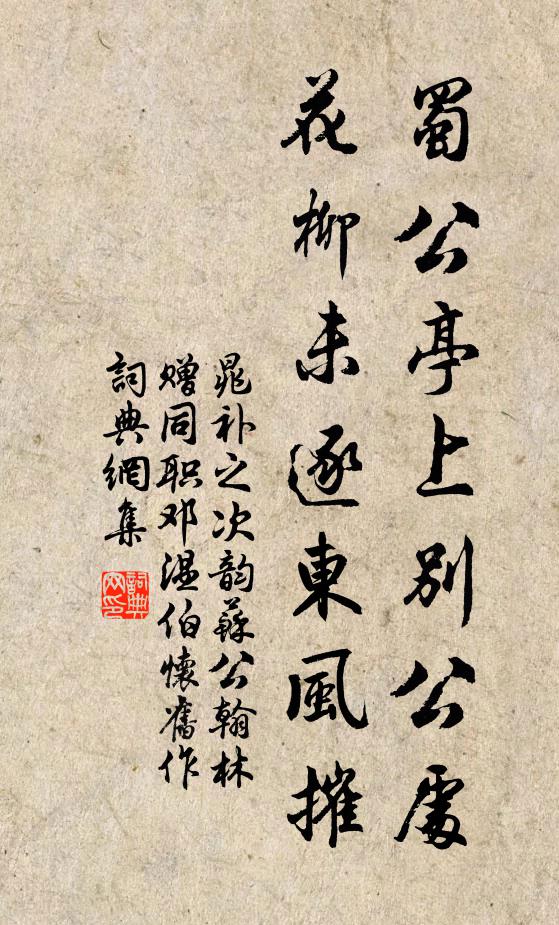 蜀公亭上别公處
花柳未逐東風摧
晁补之次韵蘇公翰林
赠同职邓温伯懷舊作
詞典網集
詞典
网印